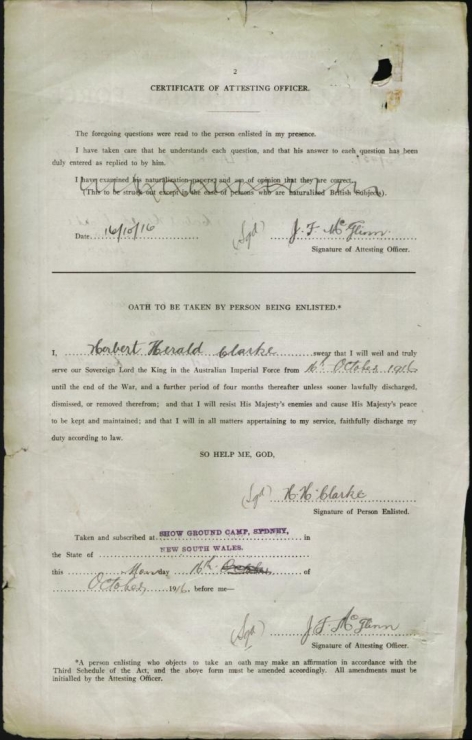 2
CERTIFICATE OF ATTESTING OFFICER.
The foregoing questions were read to the person enlisted in my presence.
I have taken care that he understands each question, and that his answer to each question has been
duly entered as replied to by him.
I have examined his naturalization papers and am of opinion that they are correct.
(This to be struck out except in the case of persons who are naturalised British Subjects).
Date 16/10/16 (Sgd) J. F. McGlinn
Signature of Attesting Officer.
OATH TO BE TAKEN BY PERSON BEING ENLISTED.*
I, Herbert Herald Clarke swear that I will well and truly
serve our Sovereign Lord the King in the Australian Imperial Force from 16th October 1916
until the end of the War, and a further period of four months thereafter unless sooner lawfully discharged,
dismissed, or removed therefrom; and that I will resist His Majesty's enemies and cause His Majesty's peace
to be kept and maintained; and that I will in all matters appertaining to my service, faithfully discharge my
duty according to law.
SO HELP ME, GOD,
(Sgd) H. H. Clarke
Signature of Person Enlisted.
Taken and subscribed at SHOW GROUND CAMP, SYDNEY, in
the State of NEW SOUTH WALES.
this Monday 16th of
October 1916, before me—
(Sgd) J. F. McGlinn
Signature of Attesting Officer.
*A person enlisting who objects to take an oath may make an affirmation in accordance with the
Third Schedule of the Act, and the above form must be amended accordingly. All amendments must be
initialled by the Attesting Officer.